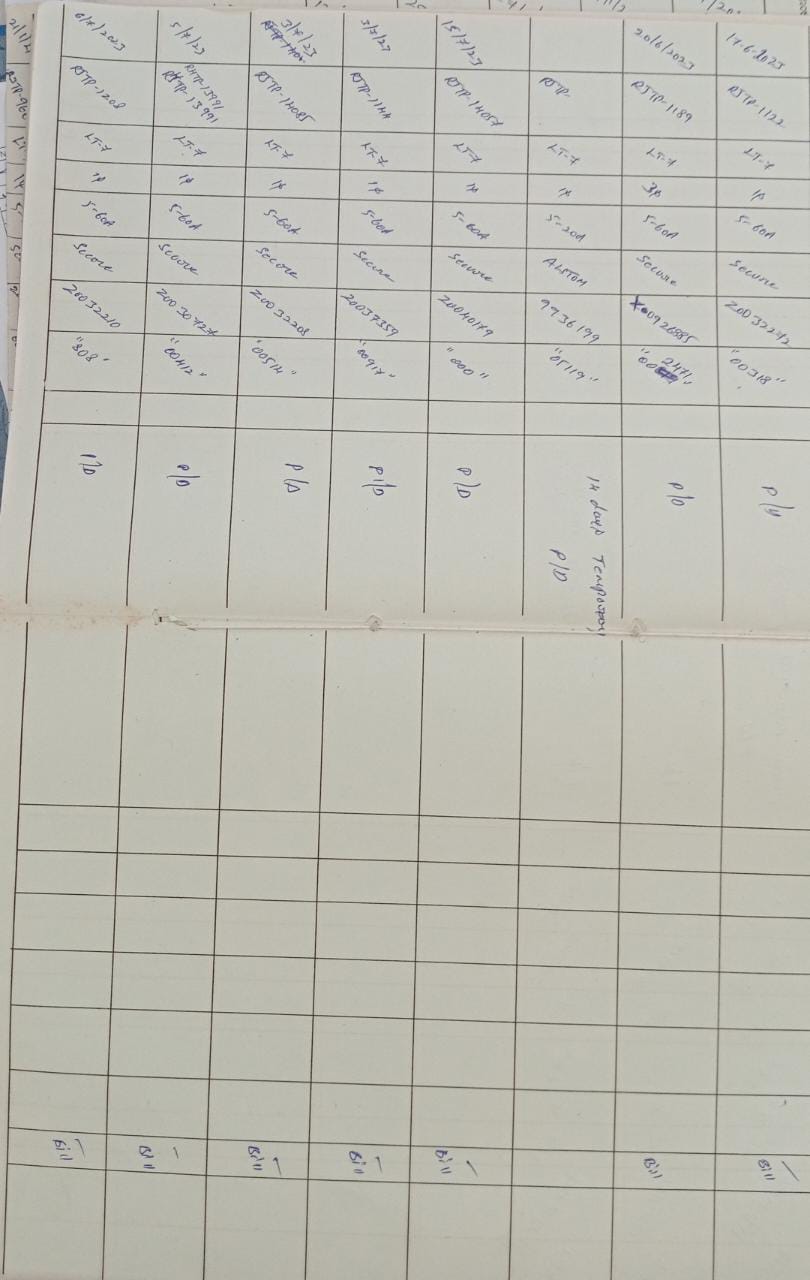 17-6-2023 RJTP-1122 LT-7 1φ 5-60A Secure Z0032272 "00318" P/D Bill
20/6/2023 RJTP-1189 LT-7 3φ 5-60A Secure X0926985 2471 P/D Bill
RJTP- LT-7 1φ 5-20A ALSTOM 9736199 "05119" 14 days Temporary
P/D
15/7/23 RJTP-14057 LT-7 1φ 5-60A Secure Z0040179 "000" P/D Bill
3/7/23 RJTP-1144 LT-7 1φ 5-60A Secure Z0037359 "00917" P/D Bill
3/7/23 RJTP-14085 LT-7 1φ 5-60A Secure Z0032208 "00514" P/D Bill
5/7/23 RJTP-13991 LT-7 1φ 5-60A Secure Z0030727 "00412" P/D Bill
6/7/2023 RJTP-1208 LT-7 1φ 5-60A Secure Z0032210 "808" P/D Bill